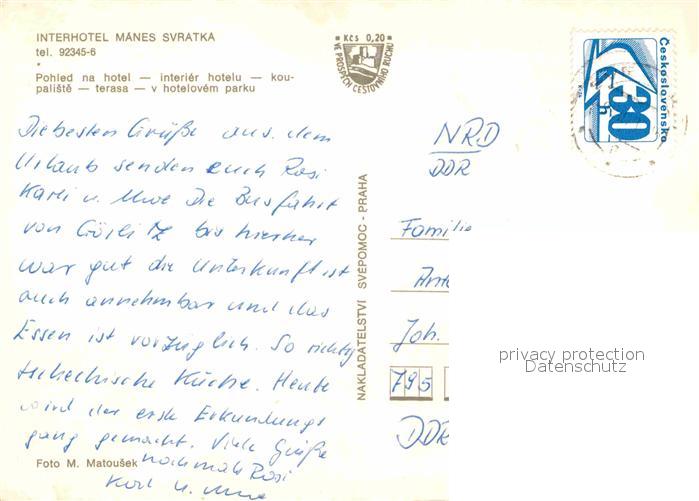 INTERHOTEL MÁNES SVRATKA
tel. 92345-6
Pohled na hotel — interiér hotelu — kou-
paliště — terasa — v hotelovém parku
Kčs 0,20
VE PROSPĚCH CESTOVNÍHO RUCHU
Československo
30 h
Die besten Grüße aus dem
Urlaub senden euch Rosi
Karli u. Uwe Die Busfahrt
von Görlitz bis hierher
war gut die Unterkunft ist
auch annehmbar und das
Essen ist vorzüglich. So richtig
tschechische Küche. Heute
wird der erste Erkundungs
gang gemacht. Viele Grüße
nochmals Rosi
Karl u. Uwe
Foto M. Matoušek
NAKLADATELSTVÍ SVÉPOMOC - PRAHA
NRD
DDR
Familie
Joh.
795
DDR
privacy protection
Datenschutz